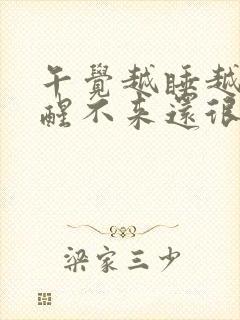 午覺越睡越
醒不来還很
梁家三少